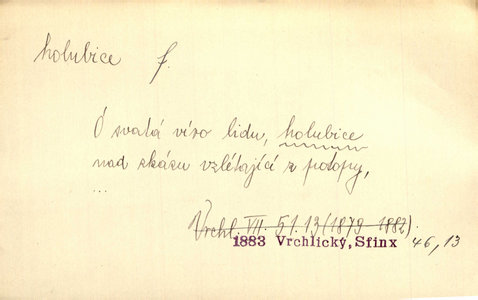 holubice f.
Ó svatá víro lidu, holubice
nad zkázu vzlétající z potopy,
...
Vrchl. VII. 51. 13 (1879-1882).
1883 Vrchlický, Sfinx 46, 13